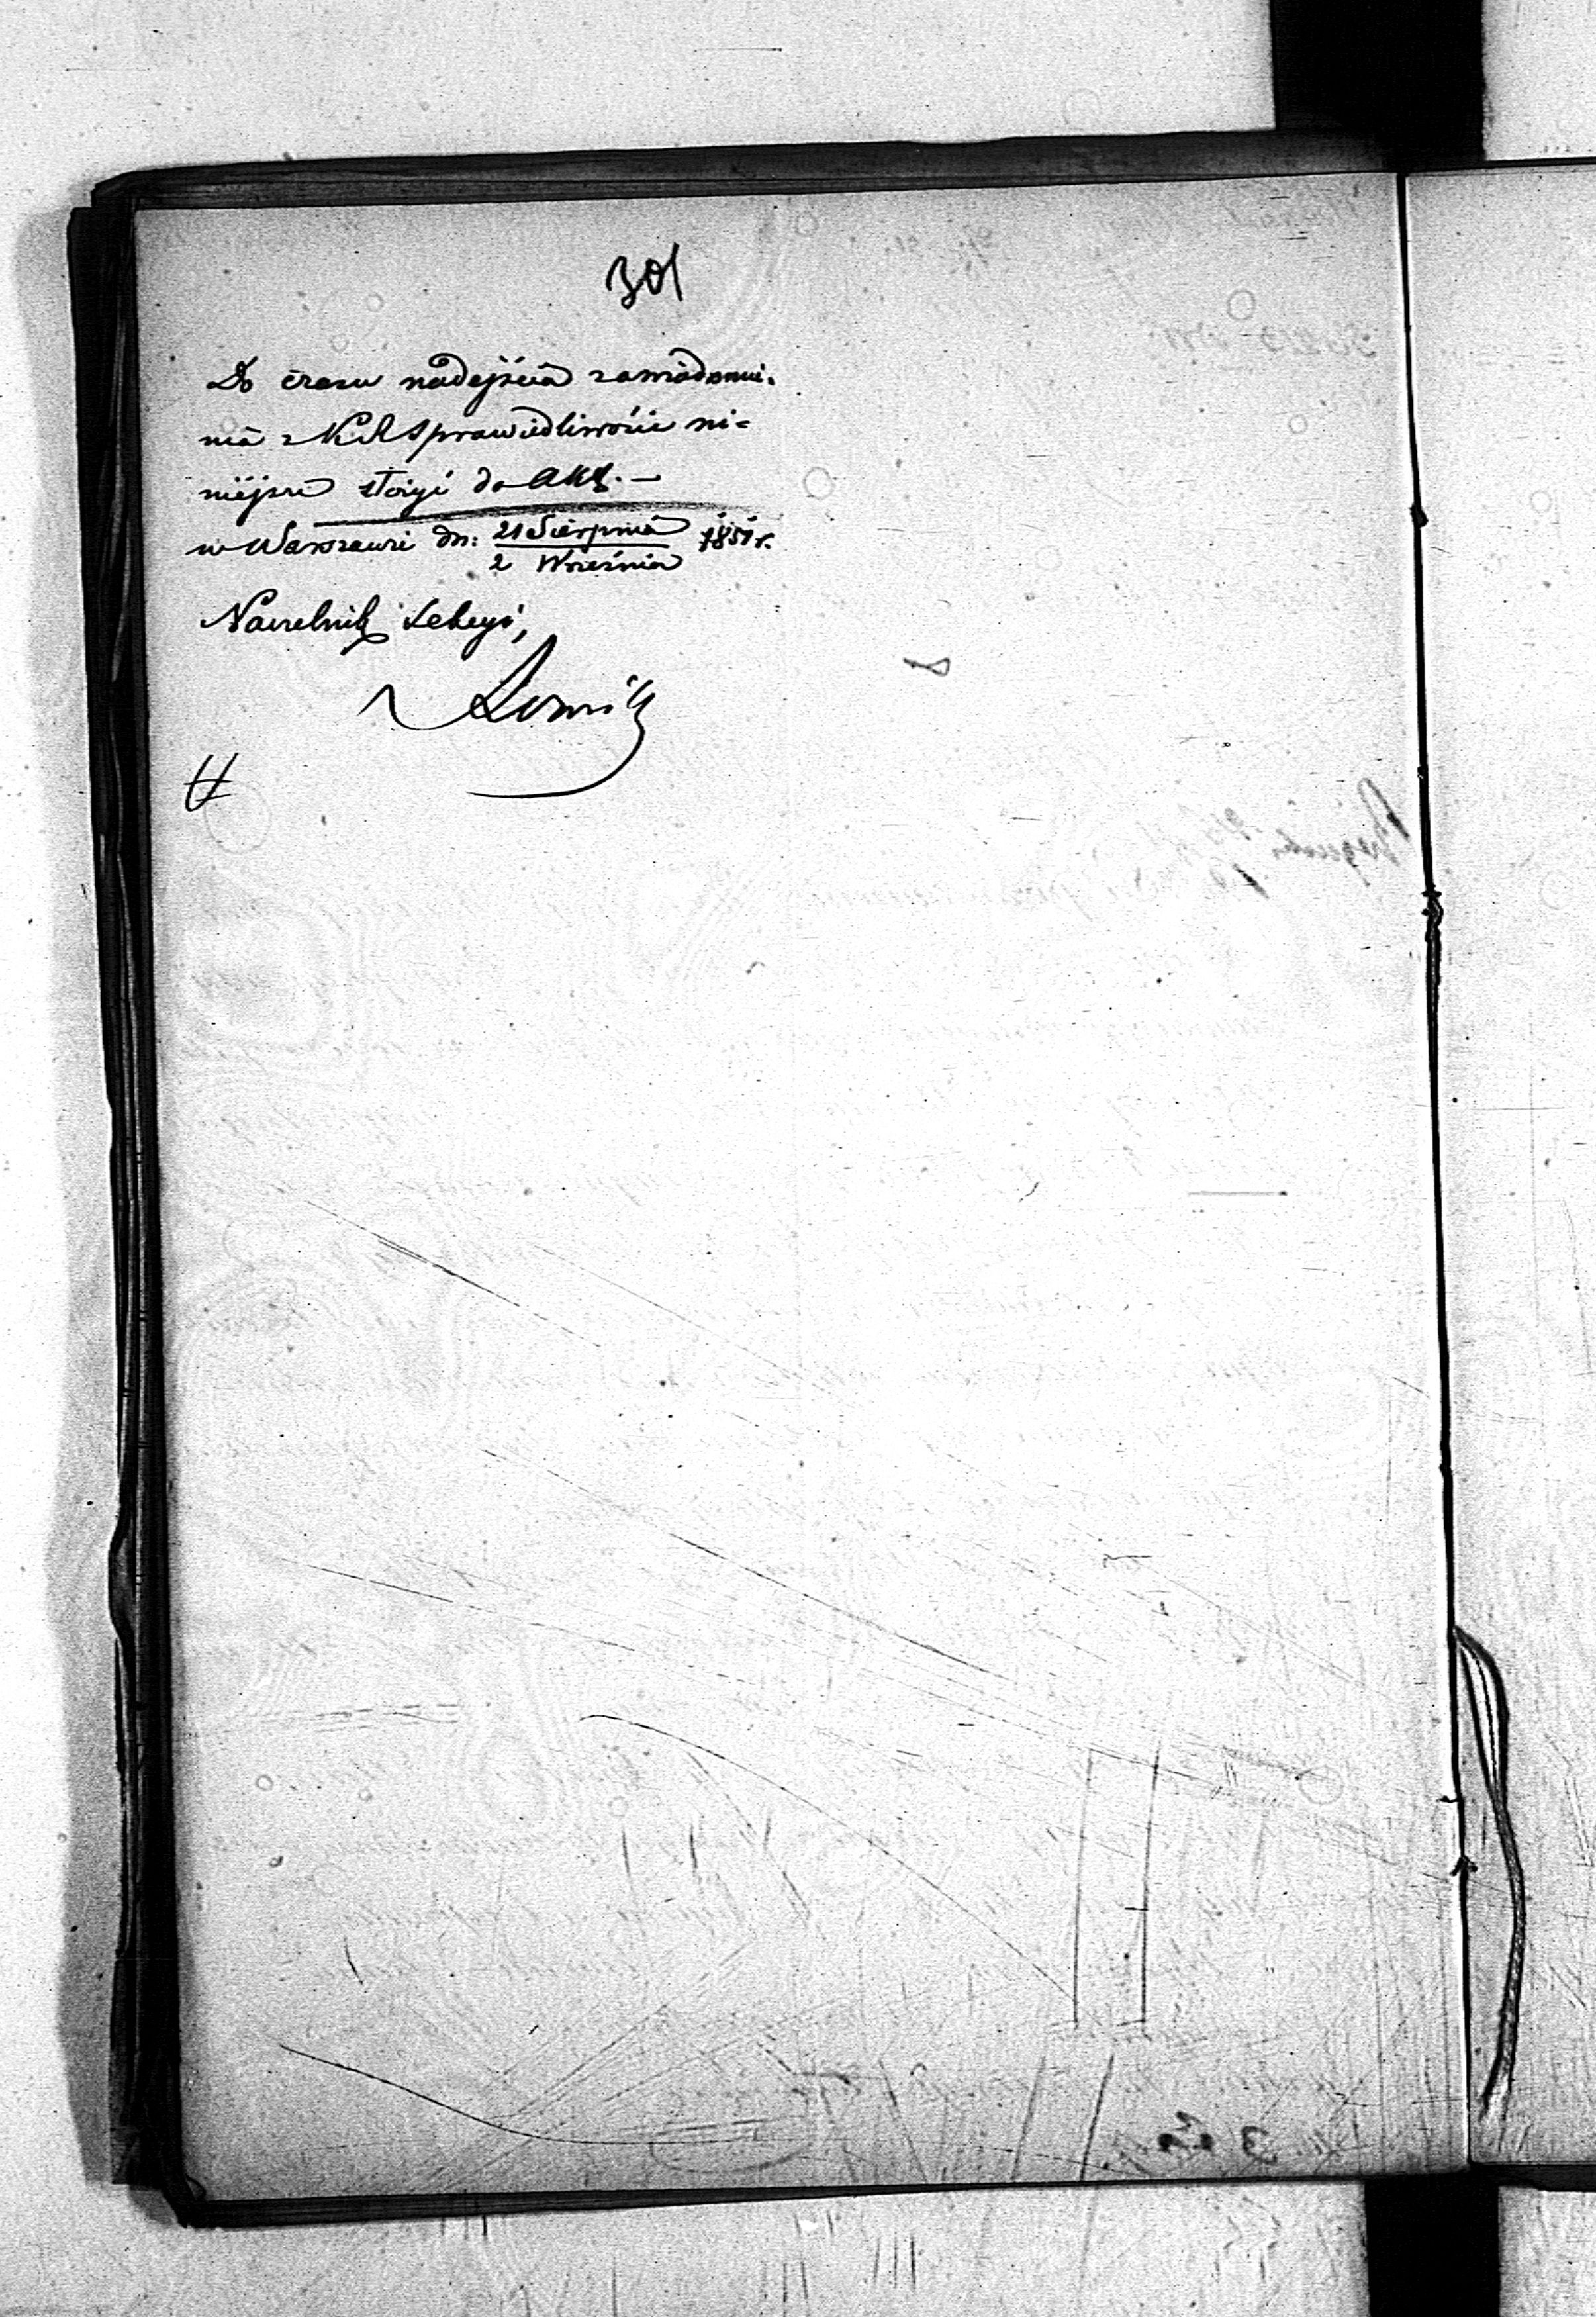 301
Do czasu nadejścia zawiadomie-
nia z KR Sprawiedliwości ni-
niejsze złożyć do Akt. —
w Warszawie dn: 21 Sierpnia / 2 Września 1851 r.
Naczelnik Sekcyi,